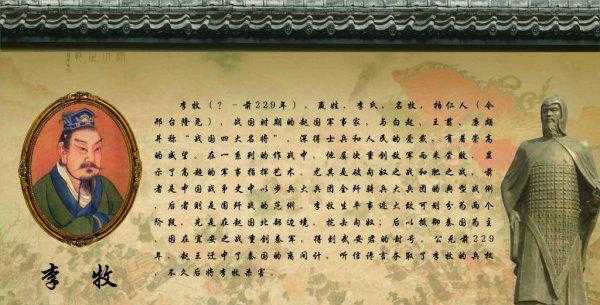 李牧（？－前229年），嬴姓，李氏，名牧，柏仁人（今
邢台隆尧），战国时期的赵国军事家，与白起、王翦、廉颇
并称“战国四大名将”，深得士兵和人民的爱戴，有着崇高
的威望。在一系列的作战中，他屡次重创敌军而未尝败，显
示了高超的军事指挥艺术。尤其是破匈奴之战和肥之战，前
者是中国战争史中以步兵大兵团全歼骑兵大兵团的典型战例，
后者则是围歼战的范例。李牧生年事迹大致可划分为两个
阶段，先是在赵国北部边境，抗击匈奴；后以抵御秦国为主，
因在宜安之战重创秦军，得到武安君的封号。公元前229
年，赵王迁中了秦国的离间计，听信谗言夺取了李牧的兵权，
不久后将李牧杀害。
李牧